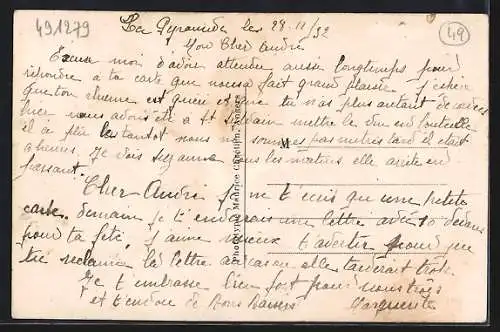 491279
La Pyramide les 28-11/32
49
Mon Cher André
Excuse moi d'avoir attendue aussi longtemps pour
répondre a ta carte que nous a fait grand plaisir j'espère
que ton rhume est guéri et que tu n'as plus autant de
hier nous avons été a St Sylvain mettre le vin en bouteille
il a plu tantot nous nous sommes pas mis tard il était
9 heures. Je vois Suzanne tous les matins elle arrête en
passant.
Cher André je ne t'écris qu'une petite
carte. demain je t'envarais une lettre avec 10 dedans
pour ta fête, j'aime mieux t'avertir pour que
tu réclame la lettre au cas ou elle tarderait trop.
Je t'embrasse bien fort pour nous trois
et t'envoie de Bons Baisers
Marguerite
Phototypie Malicape Chrétien, Angers